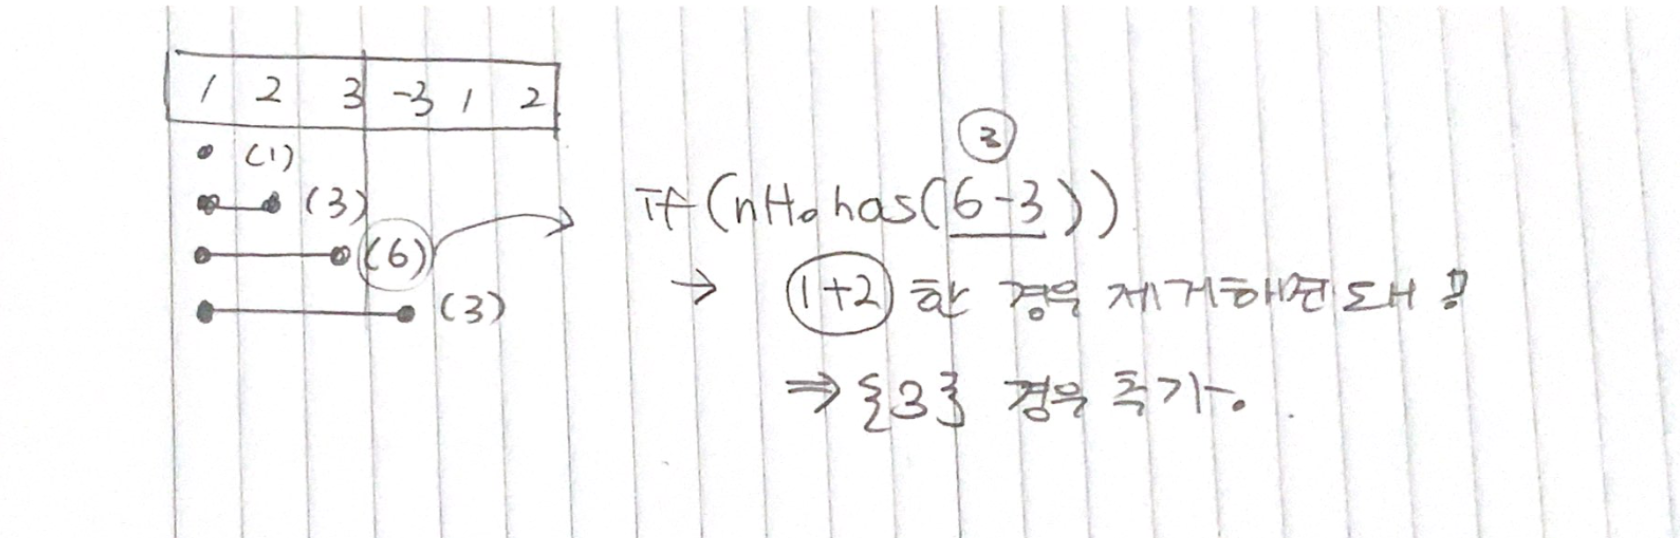 1 2 3 -3 1 2
(1)
(3)
(6)
(3)
3
if(nH.has(6-3))
→ 1+2 한 경우 제거해면 돼!
⇒ {3} 경우 추가.